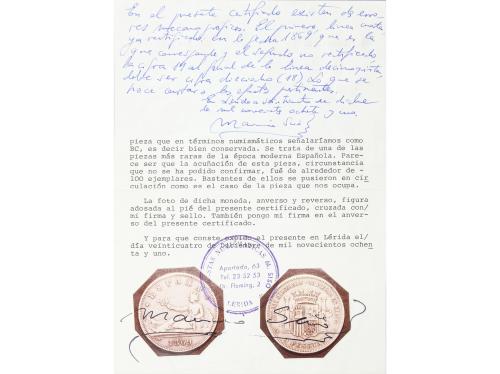 En el presente certificado existen dos erro-
res mecanográficos. El primero, línea cuarta
ya rectificado, en la fecha 1869 que es la
que corresponde y el segundo no rectificado
la cifra 19 al final de la línea decimoquinta
debe ser cifra dieciocho (18). Lo que se
hace constar a los efectos pertinentes.
En Lérida a veintiuno de dicbre
de mil novecientos ochenta y uno.
pieza que en términos numismáticos señalaríamos como
BC, es decir bien conservada. Se trata de una de las
piezas más raras de la época moderna Española. Pare-
ce ser que la acuñación de esta pieza, circunstancia
que no se ha podido confirmar, fué de alrededor de -
100 ejemplares. Bastantes de ellos se pusieron en cir
culación como es el caso de la pieza que nos ocupa.
La foto de dicha moneda, anverso y reverso, figura
adosada al pié del presente certificado, cruzada con/
mi firma y sello. También pongo mi firma en el anver-
so del presente certificado.
Y para que conste expido el presente en Lérida el/
día veinticuatro de Diciembre de mil novecientos ochen
ta y uno.
Apartado, 63
Tel. 23 52 53
Dr. Fleming, 2
LERIDA